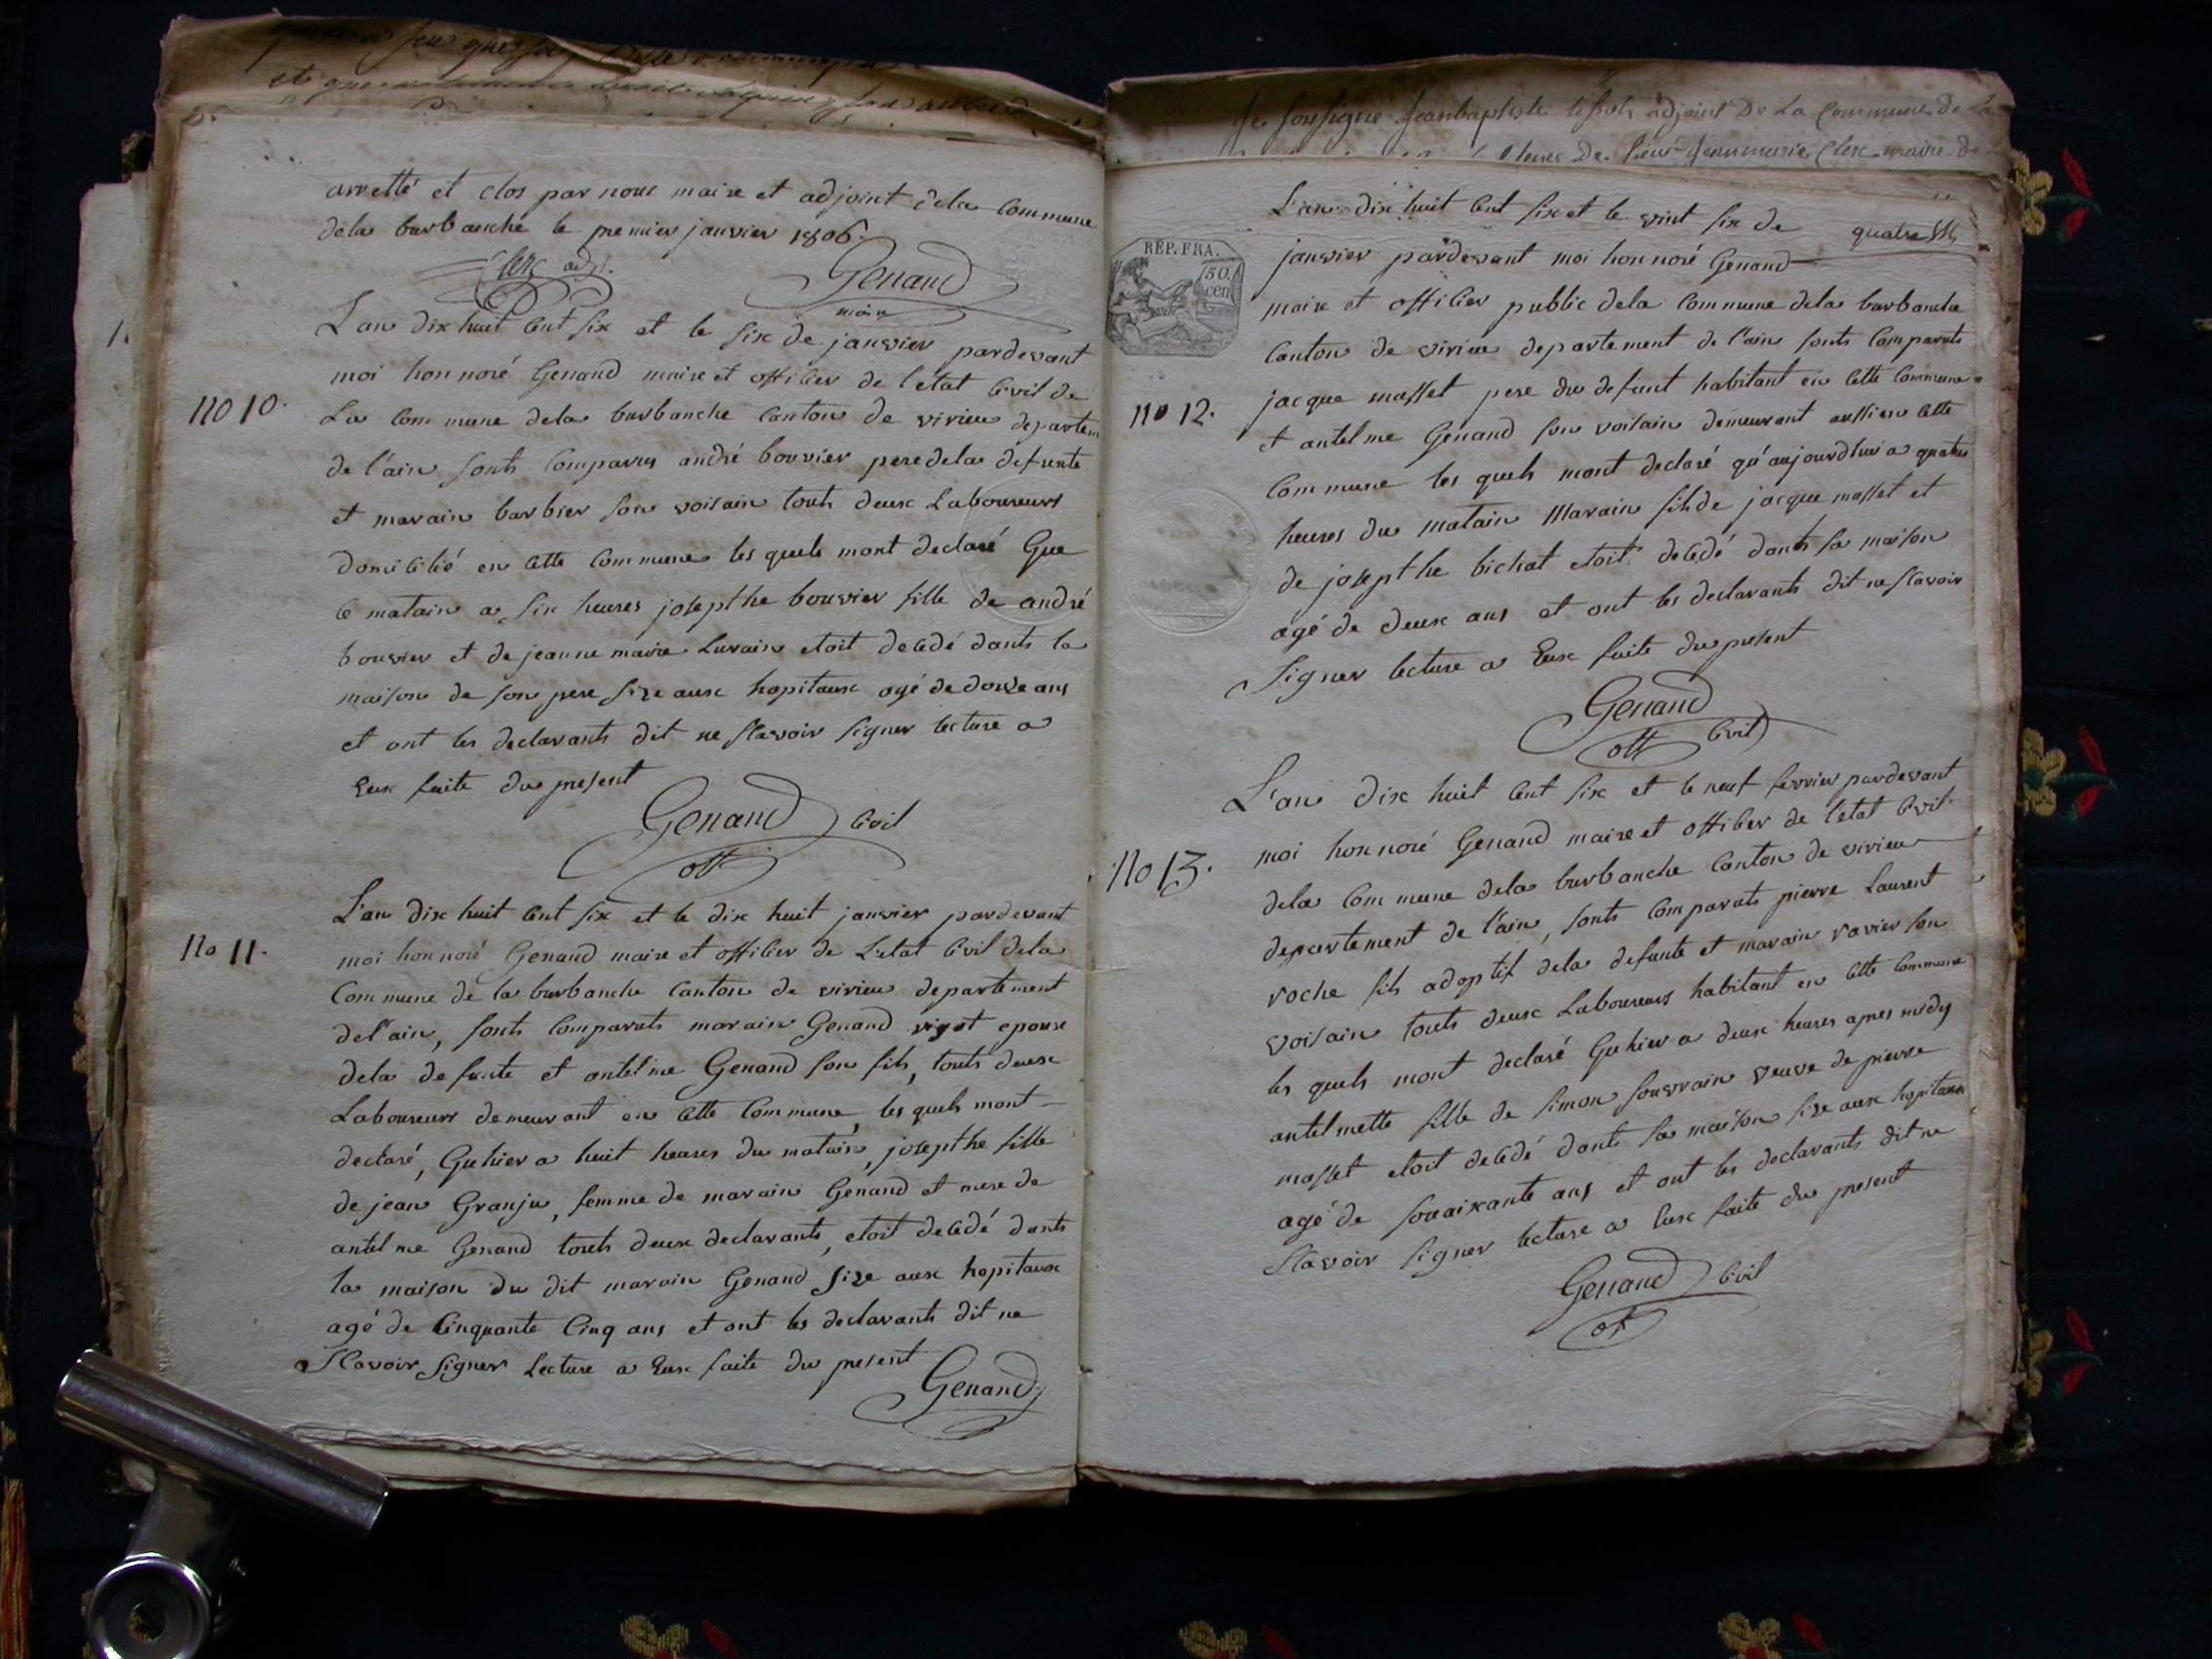 et
arretté et clos par nous maire et adjoint dela commune
dela burbanche le premier janvier 1806.
Clerc adj.
Genand
maire
no 10.
L'an dix huit cent six et le six de janvier pardevant
moi honnoré Genand maire et officier de l'etat civil de
La commune dela burbanche canton de virieu departem
de l'ain sonts comparus andré bouvier pere dela defunte
et marain barbier son voisain touts deux Laboureurs
domicilié en cette commune les quels mont declaré que
ce matain a six heures josepthe bouvier fille de andré
bouvier et de jeanne marie Luvrain etoit decedé dants la
maison de son pere size aux hopitaux agé de douze ans
et ont les declarants dit ne scavoir signer lecture a
Eux faite du present
Genand civil
off
no 11.
L'an dix huit cent six et le dix huit janvier pardevant
moi honnoré Genand maire et officier de L'etat civil dela
Commune de la burbanche canton de virieu departement
del'ain, sonts comparats marain Genand vigot epoux
dela defunte et antelme Genand son fils, touts deux
Laboureurs demeurant en cette commune, les quels mont
declaré, Qu'hier a huit heures du matain, josepthe fille
de jean Granju, femme de marain Genand et mere de
antelme Genand touts deux declarants, etoit decedé dants
la maison du dit marain Genand size aux hopitaux
agé de Cinquante Cinq ans et ont les declarants dit ne
Scavoir signer Lecture a Eux faite du present
Genand
Je soussigné Jeanbaptiste adjoint De La Commune de La
De sieur Jeanmarie Clerc maire de
quatre
REP. FRA.
50.
cen
no 12.
L'an dix huit cent six et le vint six de
janvier pardevant moi honnoré Genand
maire et officier public dela commune dela burbanche
canton de virieu departement de l'ain sonts comparats
jacque masset pere du defunt habitant en cette commune
et antelme Genand son voisain demeurant aussi en cette
commune les quels mont declaré qu'aujourdhui a quatre
heures du matain Marain fils de jacque masset et
de josepthe bichat etoit decedé dants sa maison
agé de deux ans et ont les declarants dit ne scavoir
Signer lecture a Eux faite du present
Genand
off civil
no 13.
L'an dix huit cent six et le neuf fevrier pardevant
moi honnoré Genand maire et officier de l'etat civil
dela commune dela burbanche canton de virieu
departement de l'ain, sonts comparats pierre Laurent
roche fils adoptif dela defunte et marain ravier son
voisain touts deux Laboureurs habitant en cette commune
les quels mont declaré Qu'hier a deux heures apres midy
antelmette fille de simon souvrain veuve de pierre
masset etoit decedé dants sa maison size aux hopitaux
agé de souaixante ans et ont les declarants dit ne
Scavoir signer lecture a Eux faite du present
Genand civil
off